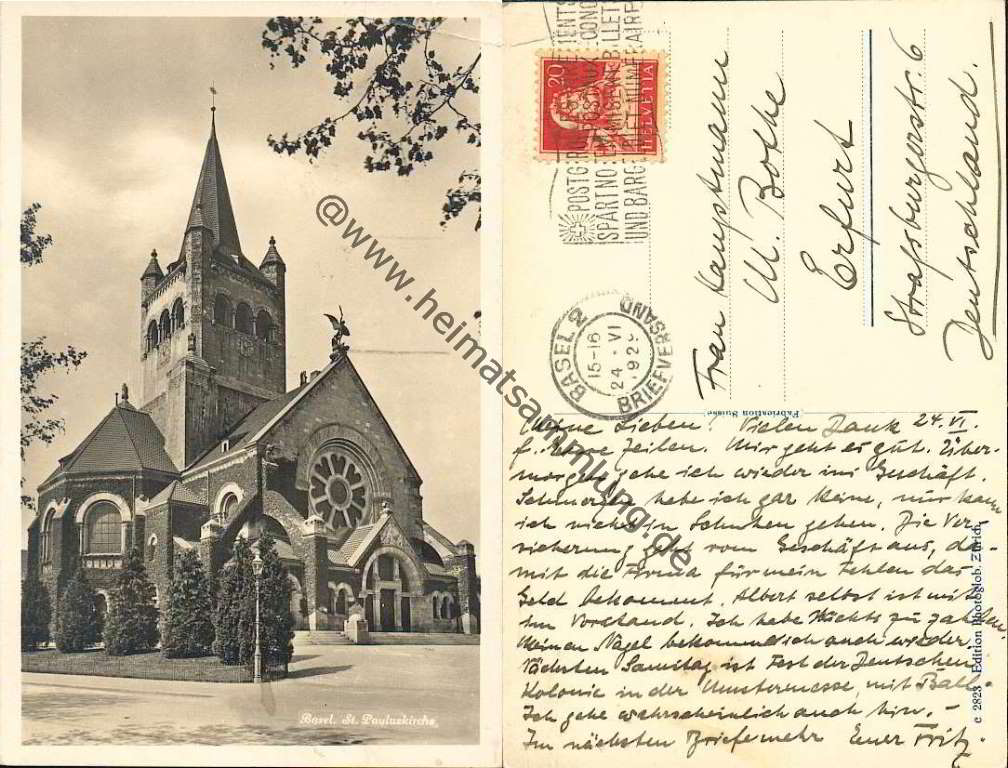 Basel. St. Pauluskirche.
@www.heimatsammlung.de
20
HELVETIA
POSTG
SPART NO
UND BARG
BASEL 2
15-16
24 VI
1929
BRIEFVERSAND
Frau Hauptmann
M. Bothe
Erfurt
Strassburgerstr. 6
Deutschland.
Fabrication Suisse
c 2823 Edition Photoglob, Zürich
24. VI.
Meine Lieben! Vielen Dank
f. Eure Zeilen. Mir geht es gut. Über-
morgen gehe ich wieder ins Geschäft.
Schmerzen habe ich gar keine, nur kann
ich nicht in Schuhen gehen. Die Ver-
sicherung geht vom Geschäft aus, da-
mit die Firma für mein Fehlen das
Geld bekommt. Albert selbst ist mit
im Vorstand. Ich habe Nichts zu zahlen
Meinen Nagel bekomme ich auch wieder.
Nächsten Samstag ist Fest der Deutschen
Kolonie in der Mustermesse, mit Ball.
Ich gehe wahrscheinlich auch hin. -
Im nächsten Briefe mehr Euer Fritz.